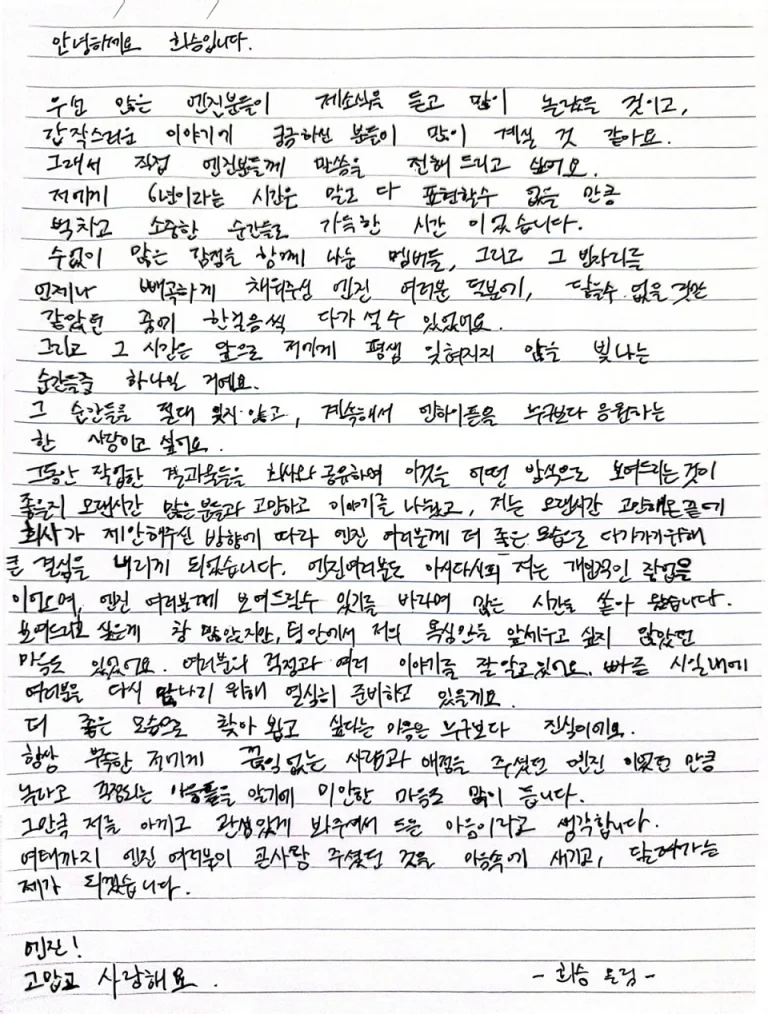 안녕하세요 희승입니다.
우선 많은 엔진분들이 제소식을 듣고 많이 놀랐을 것이고,
갑작스러운 이야기에 궁금하신 분들이 많이 계실 것 같아요.
그래서 직접 엔진분들께 말씀을 전해 드리고 싶어요.
저에게 6년이라는 시간은 말로 다 표현할수 없을 만큼
벅차고 소중한 순간들로 가득한 시간 이었습니다.
수없이 많은 감정을 함께 나눈 멤버들, 그리고 그 빈자리를
언제나 빼곡하게 채워주신 엔진 여러분 덕분에, 닿을수 없을 것만
같았던 꿈에 한걸음씩 다가 설 수 있었어요.
그리고 그 시간은 앞으로 저에게 평생 잊혀지지 않을 빛나는
순간들중 하나일 거에요.
그 순간들을 절대 잊지 않고, 계속해서 엔하이픈을 누구보다 응원하는
한 사람이고 싶어요.
그동안 작업한 결과물들을 회사와 공유하며 이것을 어떤 방식으로 보여드리는것이
좋을지 오랜시간 많은분들과 고민하고 이야기를 나눴고, 저는 오랜시간 고민해온끝에
회사가 제안해주신 방향에 따라 엔진 여러분께 더 좋은 모습으로 다가가기위해
큰 결심을 내리게 되었습니다. 엔진여러분도 아시다시피 저는 개인적인 작업을
이어오며, 엔진 여러분께 보여드릴수 있기를 바라며 많은 시간을 쏟아 왔습니다.
보여드리고 싶은게 참 많았지만, 팀 안에서 저의 욕심만을 앞세우고 싶지 않았던
마음도 있었어요. 여러분의 걱정과 여러 이야기를 잘 알고있어요. 빠른 시일내에
여러분을 다시 만나기 위해 열심히 준비하고 있을게요.
더 좋은 모습으로 찾아 뵙고 싶다는 마음은 누구보다 진심이에요.
항상 부족한 저에게 끊임없는 사랑과 애정을 주셨던 엔진 이었던 만큼
놀라고 걱정되는 마음들을 알기에 미안한 마음도 많이 듭니다.
그만큼 저를 아끼고 관심있게 봐주셔서 드는 마음이라고 생각합니다.
여태까지 엔진 여러분이 큰사랑 주셨던 것을 마음속에 새기고, 달려가는
제가 되겠습니다.
엔진!
고맙고 사랑해요.
- 희승 올림 -